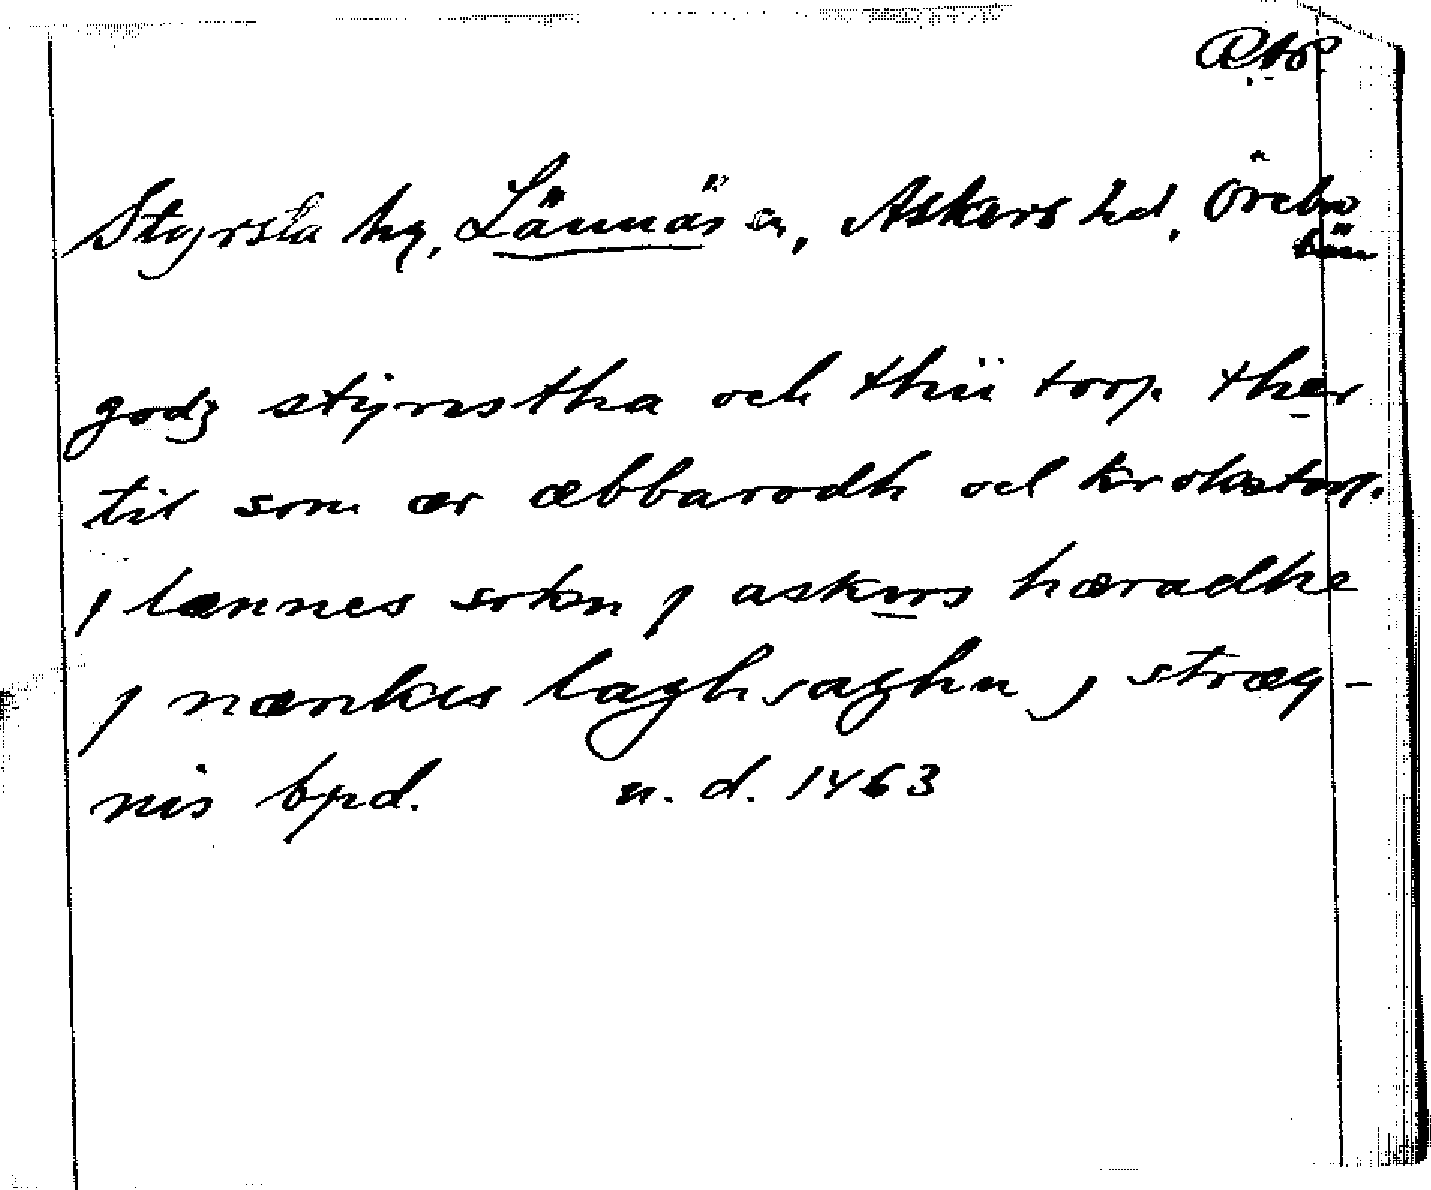 Styrsta hg, Lännäs sn, Askers hd, Örebro
län
godz stijrrestha och thii torp ther
til som ær æbbarodh ok krokstorp.
j lænnes sokn j askers hæradhe
j nærikes laghsaghu j stræg-
nis bpd. n. d. 1463